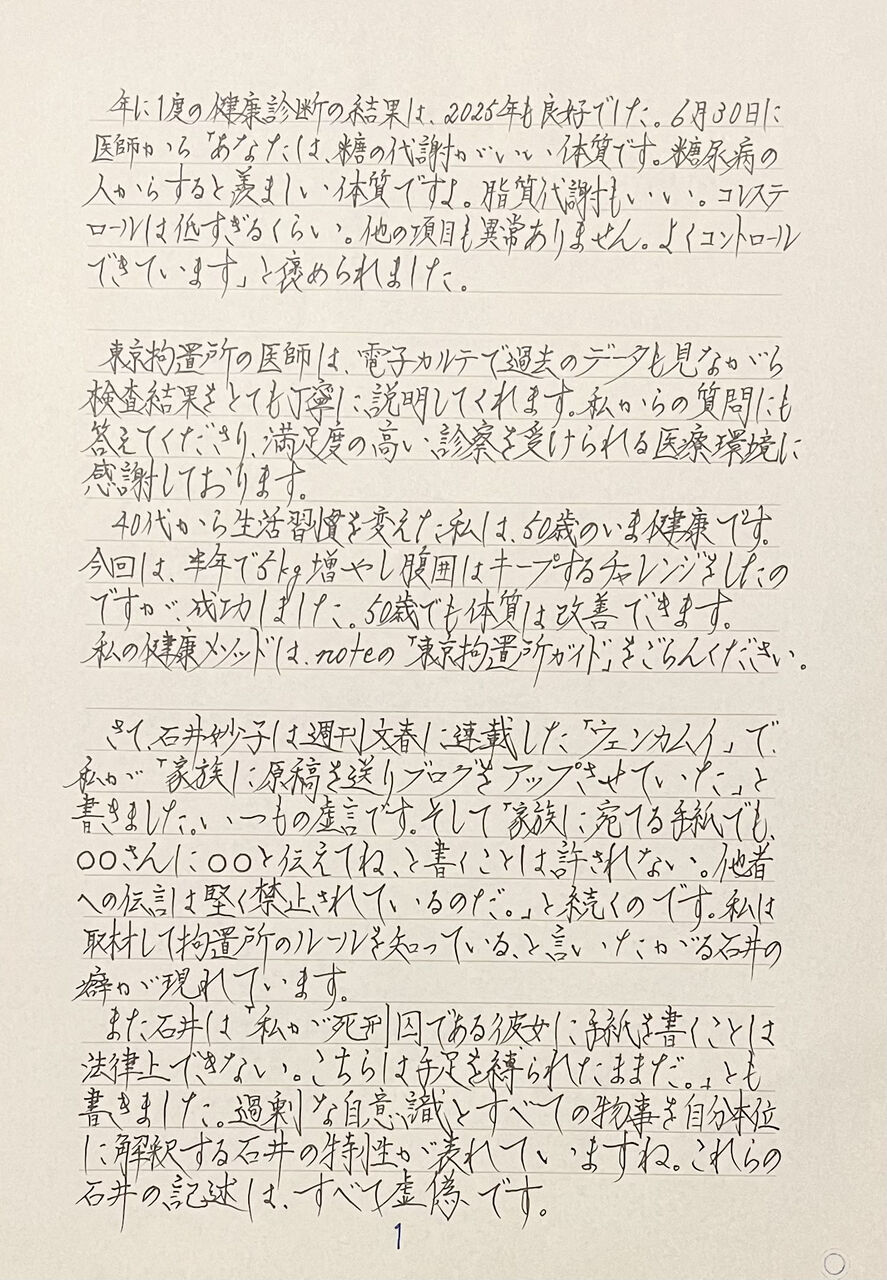 年に1度の健康診断の結果は、2025年も良好でした。6月30日に
医師から「あなたは、糖の代謝がいい体質です。糖尿病の
人からすると羨ましい体質ですよ。脂質代謝もいい。コレステ
ロールは低すぎるくらい。他の項目も異常ありません。よくコントロール
できています」と褒められました。
東京拘置所の医師は、電子カルテで過去のデータも見ながら
検査結果をとても丁寧に説明してくれます。私からの質問にも
答えてくださり、満足度の高い診察を受けられる医療環境に
感謝しております。
40代から生活習慣を変えた私は、50歳のいま健康です。
今回は、半年で5kg増やし腹囲はキープするチャレンジをしたの
ですが、成功しました。50歳でも体質は改善できます。
私の健康メソッドは、noteの「東京拘置所ガイド」をごらんください。
さて、石井妙子は週刊文春に連載した「ウェンカムイ」で、
私が「家族に原稿を送りブログをアップさせていた」と
書きました。いつもの虚言です。そして「家族に宛てる手紙でも、
○○さんに○○と伝えてね、と書くことは許されない。他者
への伝言は堅く禁止されているのだ。」と続くのです。私は
取材して拘置所のルールを知っている、と言いたがる石井の
癖が現れています。
また石井は「私が死刑囚である彼女に手紙を書くことは
法律上できない。こちらは手足を縛られたままだ。」とも
書きました。過剰な自意識とすべての物事を自分本位
に解釈する石井の特性が表れていますね。これらの
石井の記述は、すべて虚偽です。
1